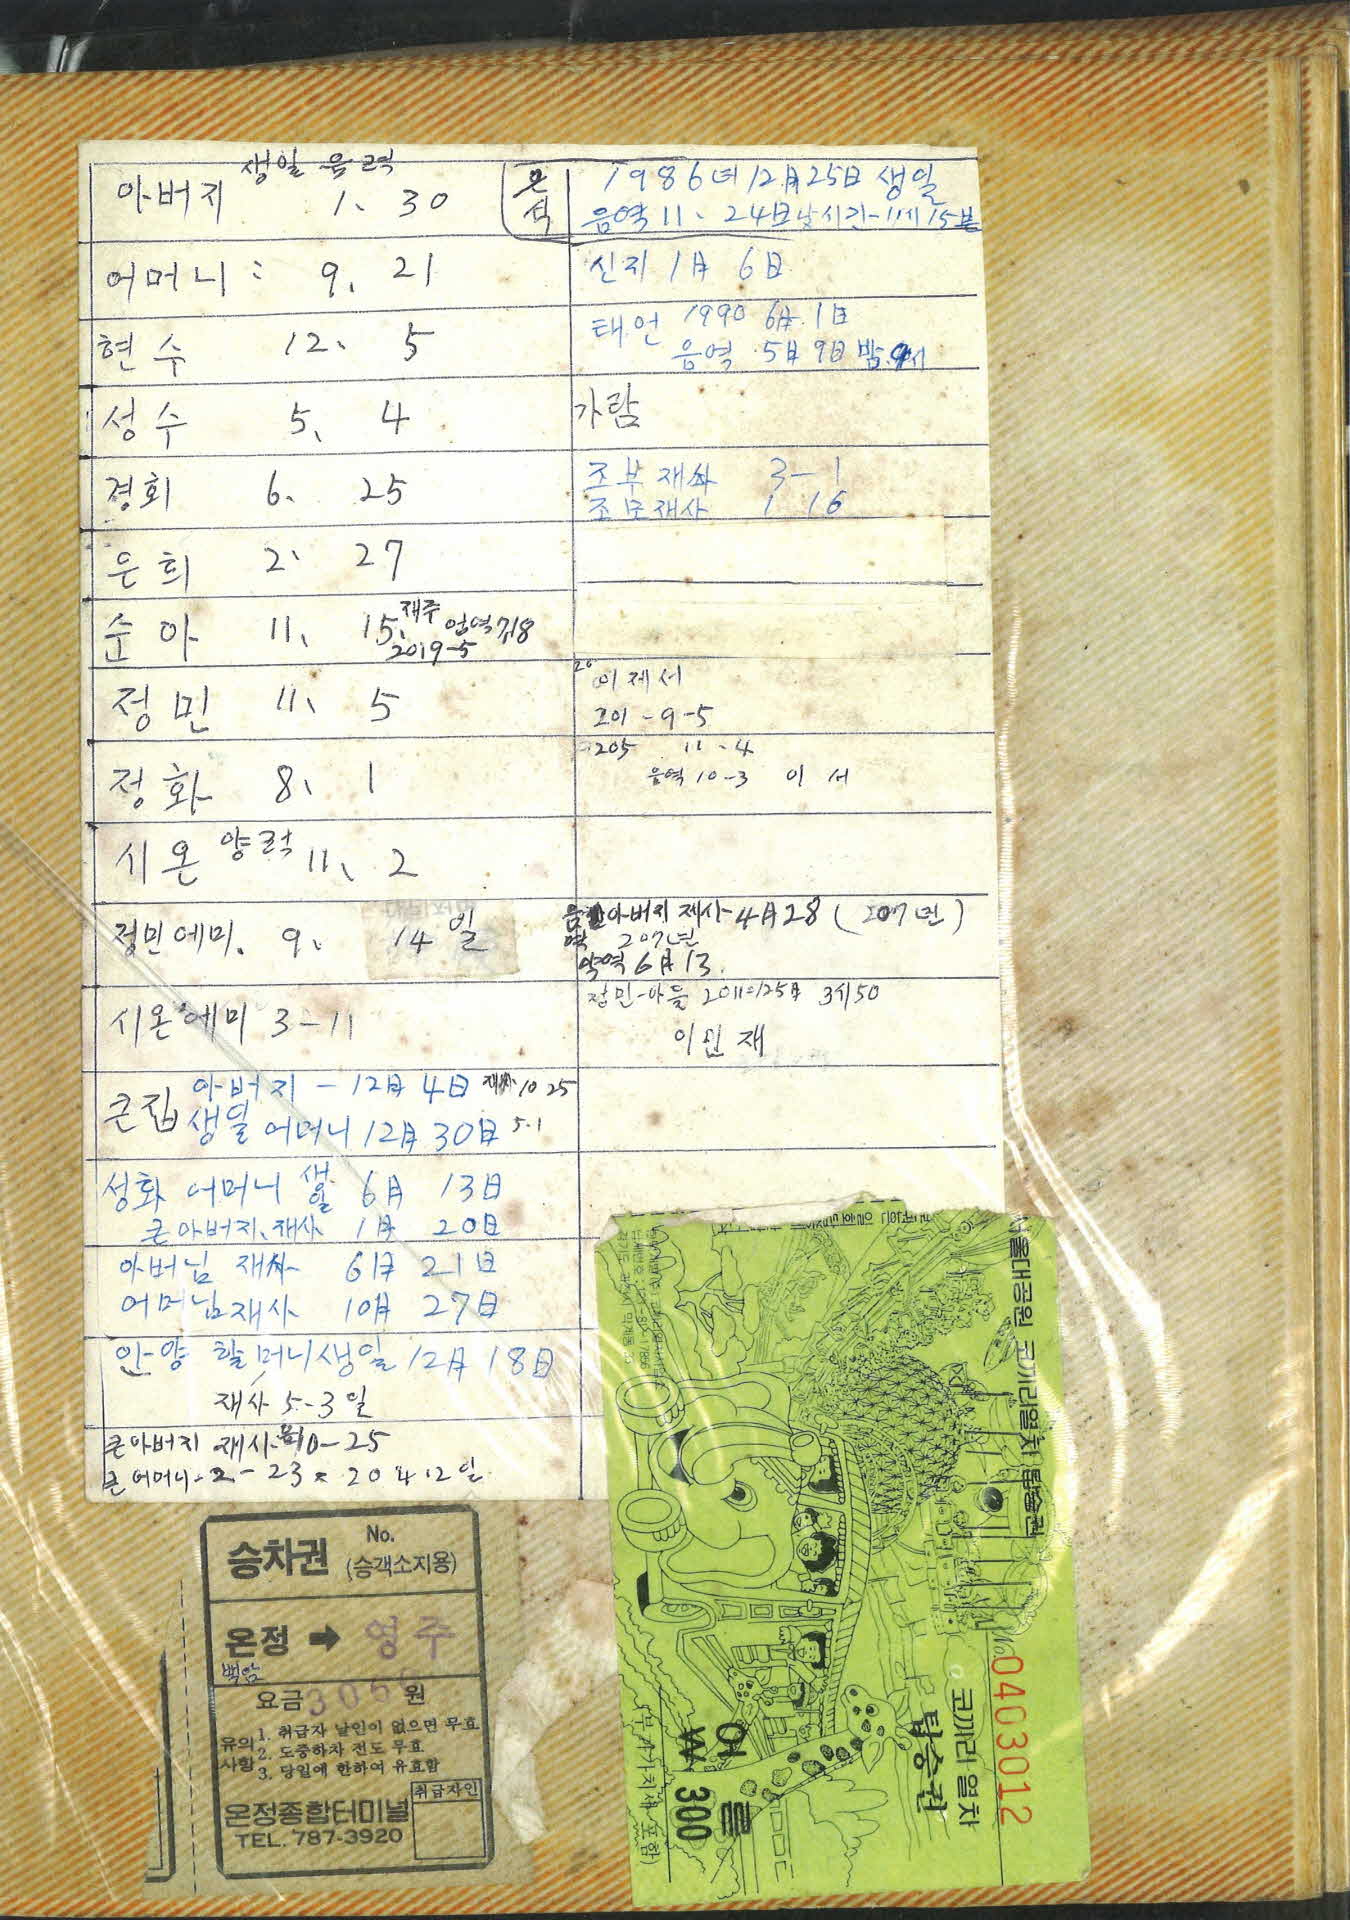 생일 음력
아버지 1、 30
어머니 : 9、 21
현수 12、 5
성수 5、 4
경희 6、 25
은희 2、 27
순아 11、 15、
2019-5
정민 11、 5
정화 8、 1
시온 양력 11、 2
정민에미. 9、 14일
시온에미 3-11
큰집 아버지 - 12月 4日 10 25
생일 어머니 12月 30日 5.1
성화 어머니 생일 6月 13日
큰아버지、재사 1月 20日
아버님 재사 6月 21日
어머님 재사 10月 27日
안양 할머니 생일 12月 18日
재사 5-3일
큰아버지 재사 음10-25
큰어머니 2-23
은석
1986년 12月 25日 생일
음역 11、 24日 낮시간-11시 15분
신지 1月 6日
태언 1990 6月 1日
음역 5月 9日 밤
가람
조부재사 3-1
조모재사 1 16
이제서
201-9-5
205 11-4
음역 10-3 이서
아버지 제사 4月 28 (207년)
207년
양역 6月 13
정민-아들 3시50
이인재
승차권 No.
(승객소지용)
온정 ➡ 영주
백암
요금 원
유의사항
1. 취급자 날인이 없으면 무효
2. 도중하차 전도 무효
3. 당일에 한하여 유효함
취급자인
온정종합터미널
TEL. 787-3920
서울대공원 코끼리열차 탑승권
No 0403012
코끼리열차
탑승권
어른
₩300
(부가가치세 포함)